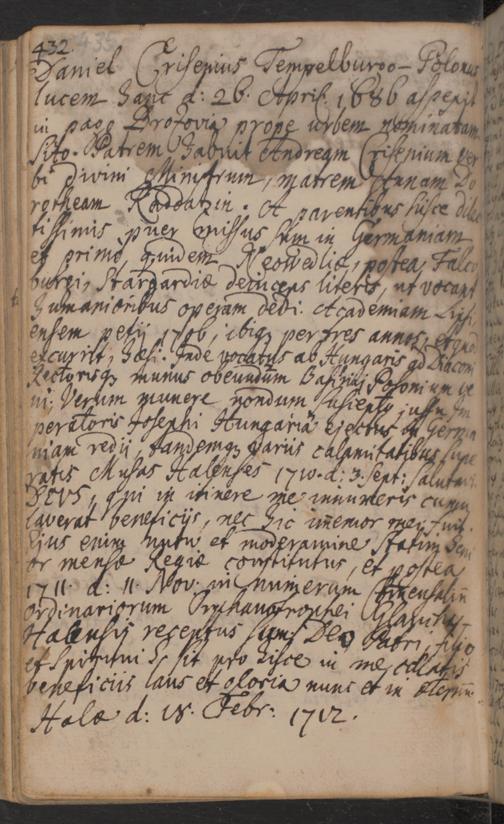 432.
Daniel Crisenius Tempelburgo-Polonus
lucem hanc d: 26. April. 1686 aspexit
in pago Brotovia prope urbem nominatam
sito. Patrem habuit Andream Crisenium Ver
bi Divini Ministrum, matrem Annam Do
rotheam Raddazin. A parentibus hisce dilec
tissimis puer missus sum in Germaniam
et primo quidem Neowedliæ, postea Falco
burgi, Stargardiæ deinceps literis, ut vocant
humanioribus operam dedi. Academiam Lipsi
ensem petii 1706, ibiq; per tres annos, et quod
excurrit, hæsi. Inde vocatus ab Hungaris ad Diaconi
Rectorisq; munus obeundum Posonium ve
ni. Verum munere nondum suscepto jussu Im
peratoris Josephi Hungaria ejectus in Germa
niam redii, tandemq; variis calamitatibus supe
ratis Musas Halenses 1710. d: 3. Sept: salutavi.
DEUS, qui in itinere me innumeris cumu
laverat beneficijs, nec hic im̄emor mei fuit.
Ejus enim nutu et moderamine statim Seni
or mensæ Regiæ constitutus, et postea
1711 d: 11. Nov. in numerum
Ordinariorum Orphanotrophei Glaucho-
Halensis receptus sum. Deo Patri, filio
et Spiritui S. sit pro hisce in me collatis
beneficiis laus et gloria nunc et in æternum.
Halæ d: 18. Febr: 1712.